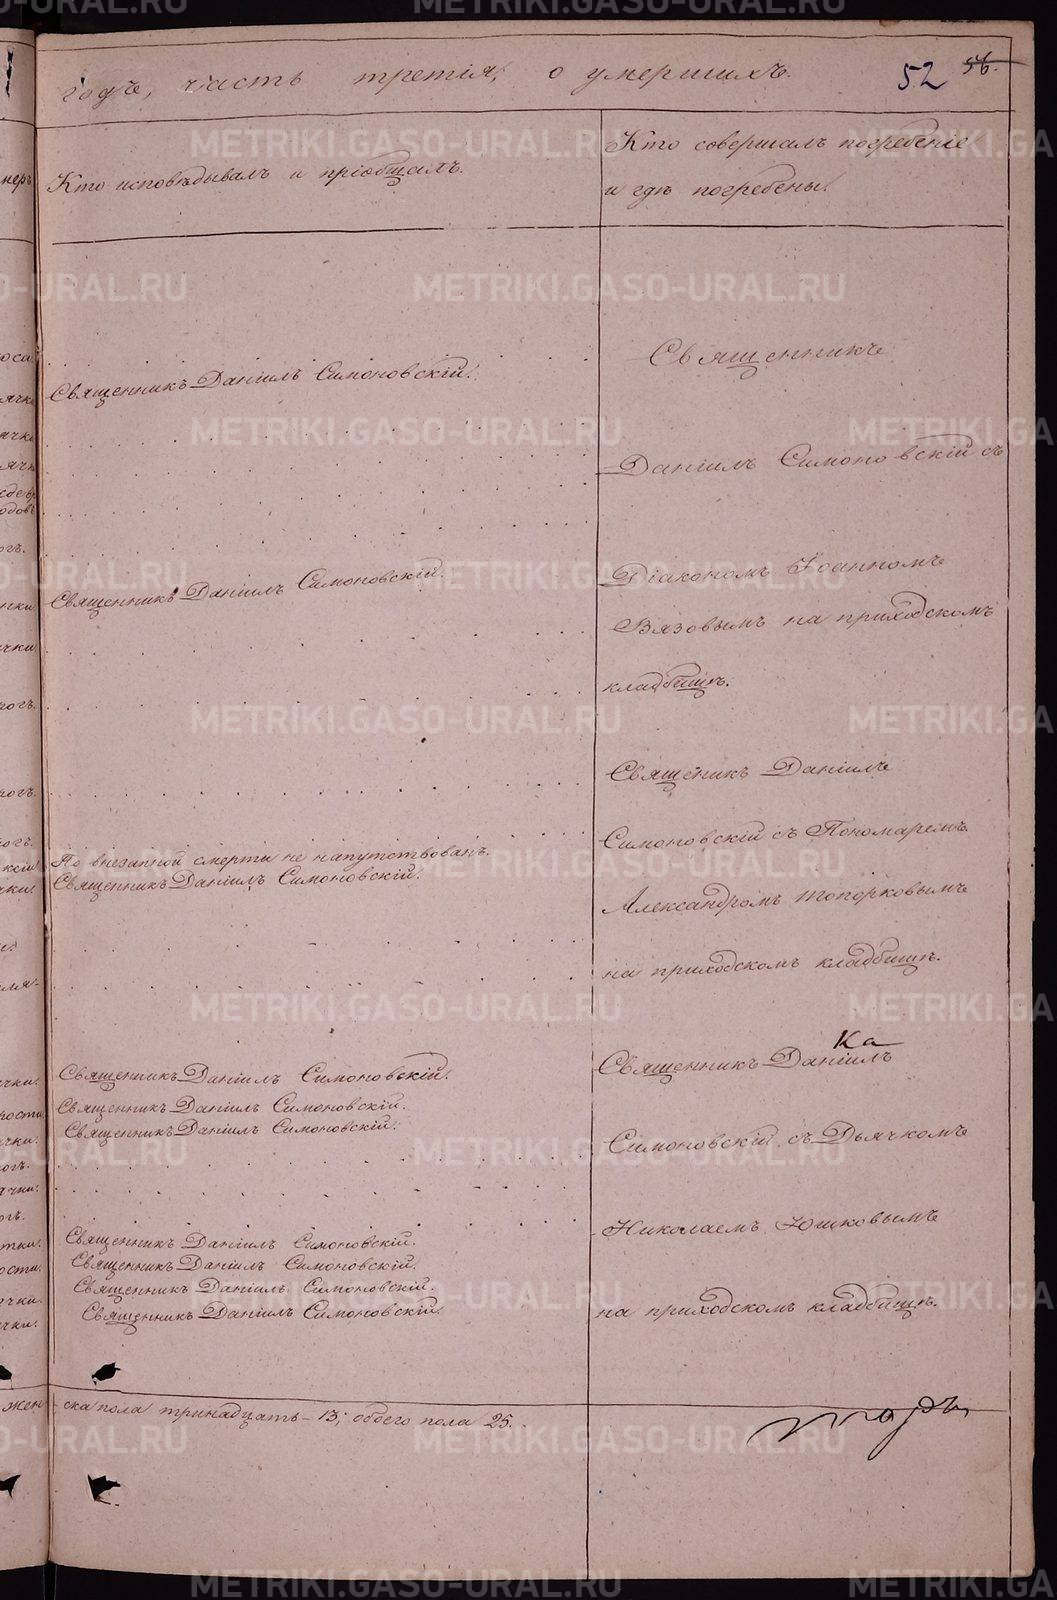 годъ, часть третія, о умершихъ.
52
56.
Кто исповѣдывалъ и пріобщалъ.
Кто совершалъ погребеніе
и гдѣ погребены.
Священникъ
Священникъ Даніилъ Симоновскій.
Даніилъ Симоновскій съ
Священникъ Даніилъ Симоновскій.
Діакономъ Іоанномъ
Вязовымъ на приходскомъ
кладбищѣ.
Священикъ Даніилъ
Симоновскій съ Пономаремъ
По внезапной смерти не напутствованъ.
Священникъ Даніилъ Симоновскій.
Александромъ Топорковымъ
на приходскомъ кладбищѣ.
Ка
Священникъ Даніилъ
Священникъ Даніилъ Симоновскій.
Священникъ Даніилъ Симоновскій.
Священникъ Даніилъ Симоновскій.
Симоновскій съ Дьячкомъ
Николаемъ Юшковымъ
Священникъ Даніилъ Симоновскій.
Священникъ Даніилъ Симоновскій.
Священникъ Даніилъ Симоновскій.
Священникъ Даніилъ Симоновскій.
на приходскомъ кладбищѣ.
жен ска пола тринадцать - 13; обоего пола 25.
METRIKI.GASO-URAL.RU